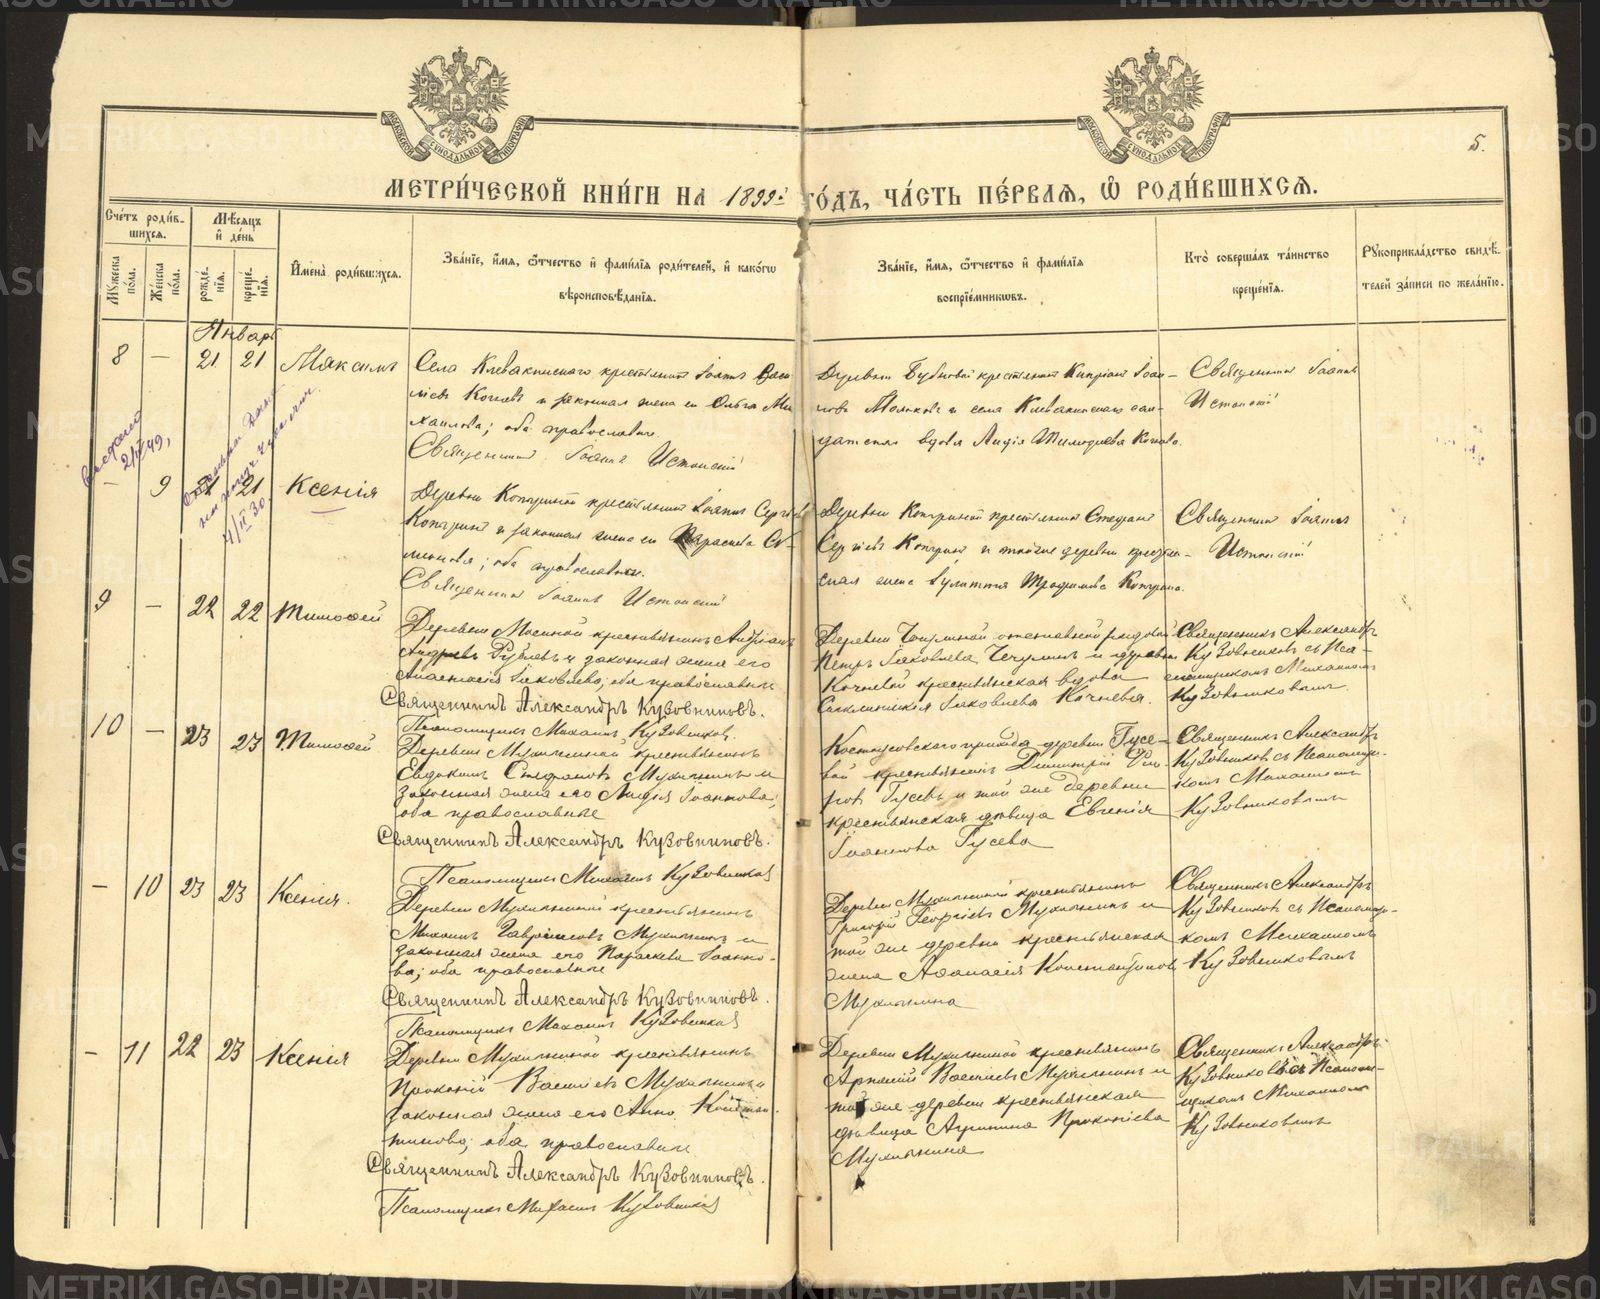 METRIKI.GASO-URAL.RU
5.
МОСКОВСКОЙ СѴНОДАЛЬНОЙ ТИПОГРАФІИ
МОСКОВСКОЙ СѴНОДАЛЬНОЙ ТИПОГРАФІИ
МЕТРИ́ЧЕСКОЙ КНИ́ГИ НА 1899й ГО́ДЪ, ЧА́СТЬ ПЕ́РВАЯ, Ѽ РОДИ́ВШИХСЯ.
Сче́тъ роди́в-
шихся.
Мѣ́сяцъ
и҆ де́нь
Му́жеска по́ла.
Же́нска по́ла.
рожде́нїя.
креще́нїя.
И҆мена̀ роди́вшихся.
Зва́нїе, и҆́мя, ѻ҆́тчество и҆ фами́лїя роди́телей, и҆ како́гѡ
вѣроисповѣ́данїя.
Зва́нїе, и҆́мя, ѻ҆́тчество и҆ фами́лїя
воспрїе́мниковъ.
Кто̀ соверша́лъ та́инство
креще́нїя.
Рꙋкоприкла́дство свидѣ́-
телей за́писи по жела́нїю.
Январь
8 — 21 21 Максимъ
Села Клевакинскаго крестьянинъ Іоаннъ Васи-
льевъ и законная жена его Ольга Ми-
хаилова; оба православные
Священникъ Іоаннъ
Деревни крестьянинъ Кипріанъ Іоан-
новъ и села Клевакинскаго сол-
датская вдова Лидія
Священникъ Іоаннъ
— 9 21 21 Ксенія
Деревни крестьянинъ Іоаннъ Сергѣевъ
и законная жена его Параскева Си-
меонова; оба православные.
Священникъ Іоаннъ
Деревни крестьянинъ Стефанъ
Сергіевъ и тойже деревни крестьян-
ская жена Трофимова
Священникъ Іоаннъ
9 — 22 22 Тимоѳей
Деревни Мосиной крестьянинъ Андріанъ
Андреевъ Рублевъ и законная жена его
Анастасія Іаковлева; оба православные
Священникъ Александръ Кузовниковъ.
Псаломщикъ Михаилъ Кузовниковъ
Деревни Чечулиной отставной рядовой
Петръ Іаковлевъ Чечулинъ и деревни
Кочневой крестьянская вдова
Іаковлева Кочнева.
Священникъ Александръ
Кузовниковъ съ Пса-
ломщикомъ Михаиломъ
Кузовниковымъ.
10 — 23 23 Тимоѳей
Деревни Мухлыниной крестьянинъ
Евдокимъ Стефановъ Мухлынинъ и
законная жена его Лидія Іоаннова;
оба православные
Священникъ Александръ Кузовниковъ.
Псаломщикъ Михаилъ Кузовниковъ
Костоусовскаго прихода деревни Гусе-
вой крестьянинъ Димитрій
Гусевъ и той же деревни
крестьянская дѣвица Евгенія
Іоаннова Гусева
Священникъ Александръ
Кузовниковъ съ Псаломщи-
комъ Михаиломъ
Кузовниковымъ
— 10 23 23 Ксенія.
Деревни Мухлыниной крестьянинъ
Михаилъ Гавриловъ Мухлынинъ и
законная жена его Параскева Іоанно-
ва; оба православные
Священникъ Александръ Кузовниковъ.
Псаломщикъ Михаилъ Кузовниковъ
Деревни Мухлыниной крестьянинъ
Григорій Георгіевъ Мухлынинъ и
той же деревни крестьянская
жена Аѳанасія Константинова
Мухлынина
Священникъ Александръ
Кузовниковъ съ Псаломщи-
комъ Михаиломъ
Кузовниковымъ
— 11 22 23 Ксенія
Деревни Мухлыниной крестьянинъ
Прокопій Васильевъ Мухлынинъ и
законная жена его Анна Констан-
тинова; оба православные
Священникъ Александръ Кузовниковъ.
Псаломщикъ Михаилъ Кузовниковъ
Деревни Мухлыниной крестьянинъ
Васильевъ Мухлынинъ и
той же деревни крестьянская
дѣвица Агрипина Прокопіева
Мухлынина
Священникъ Александръ
Кузовниковъ съ Псалом-
щикомъ Михаиломъ
Кузовниковымъ